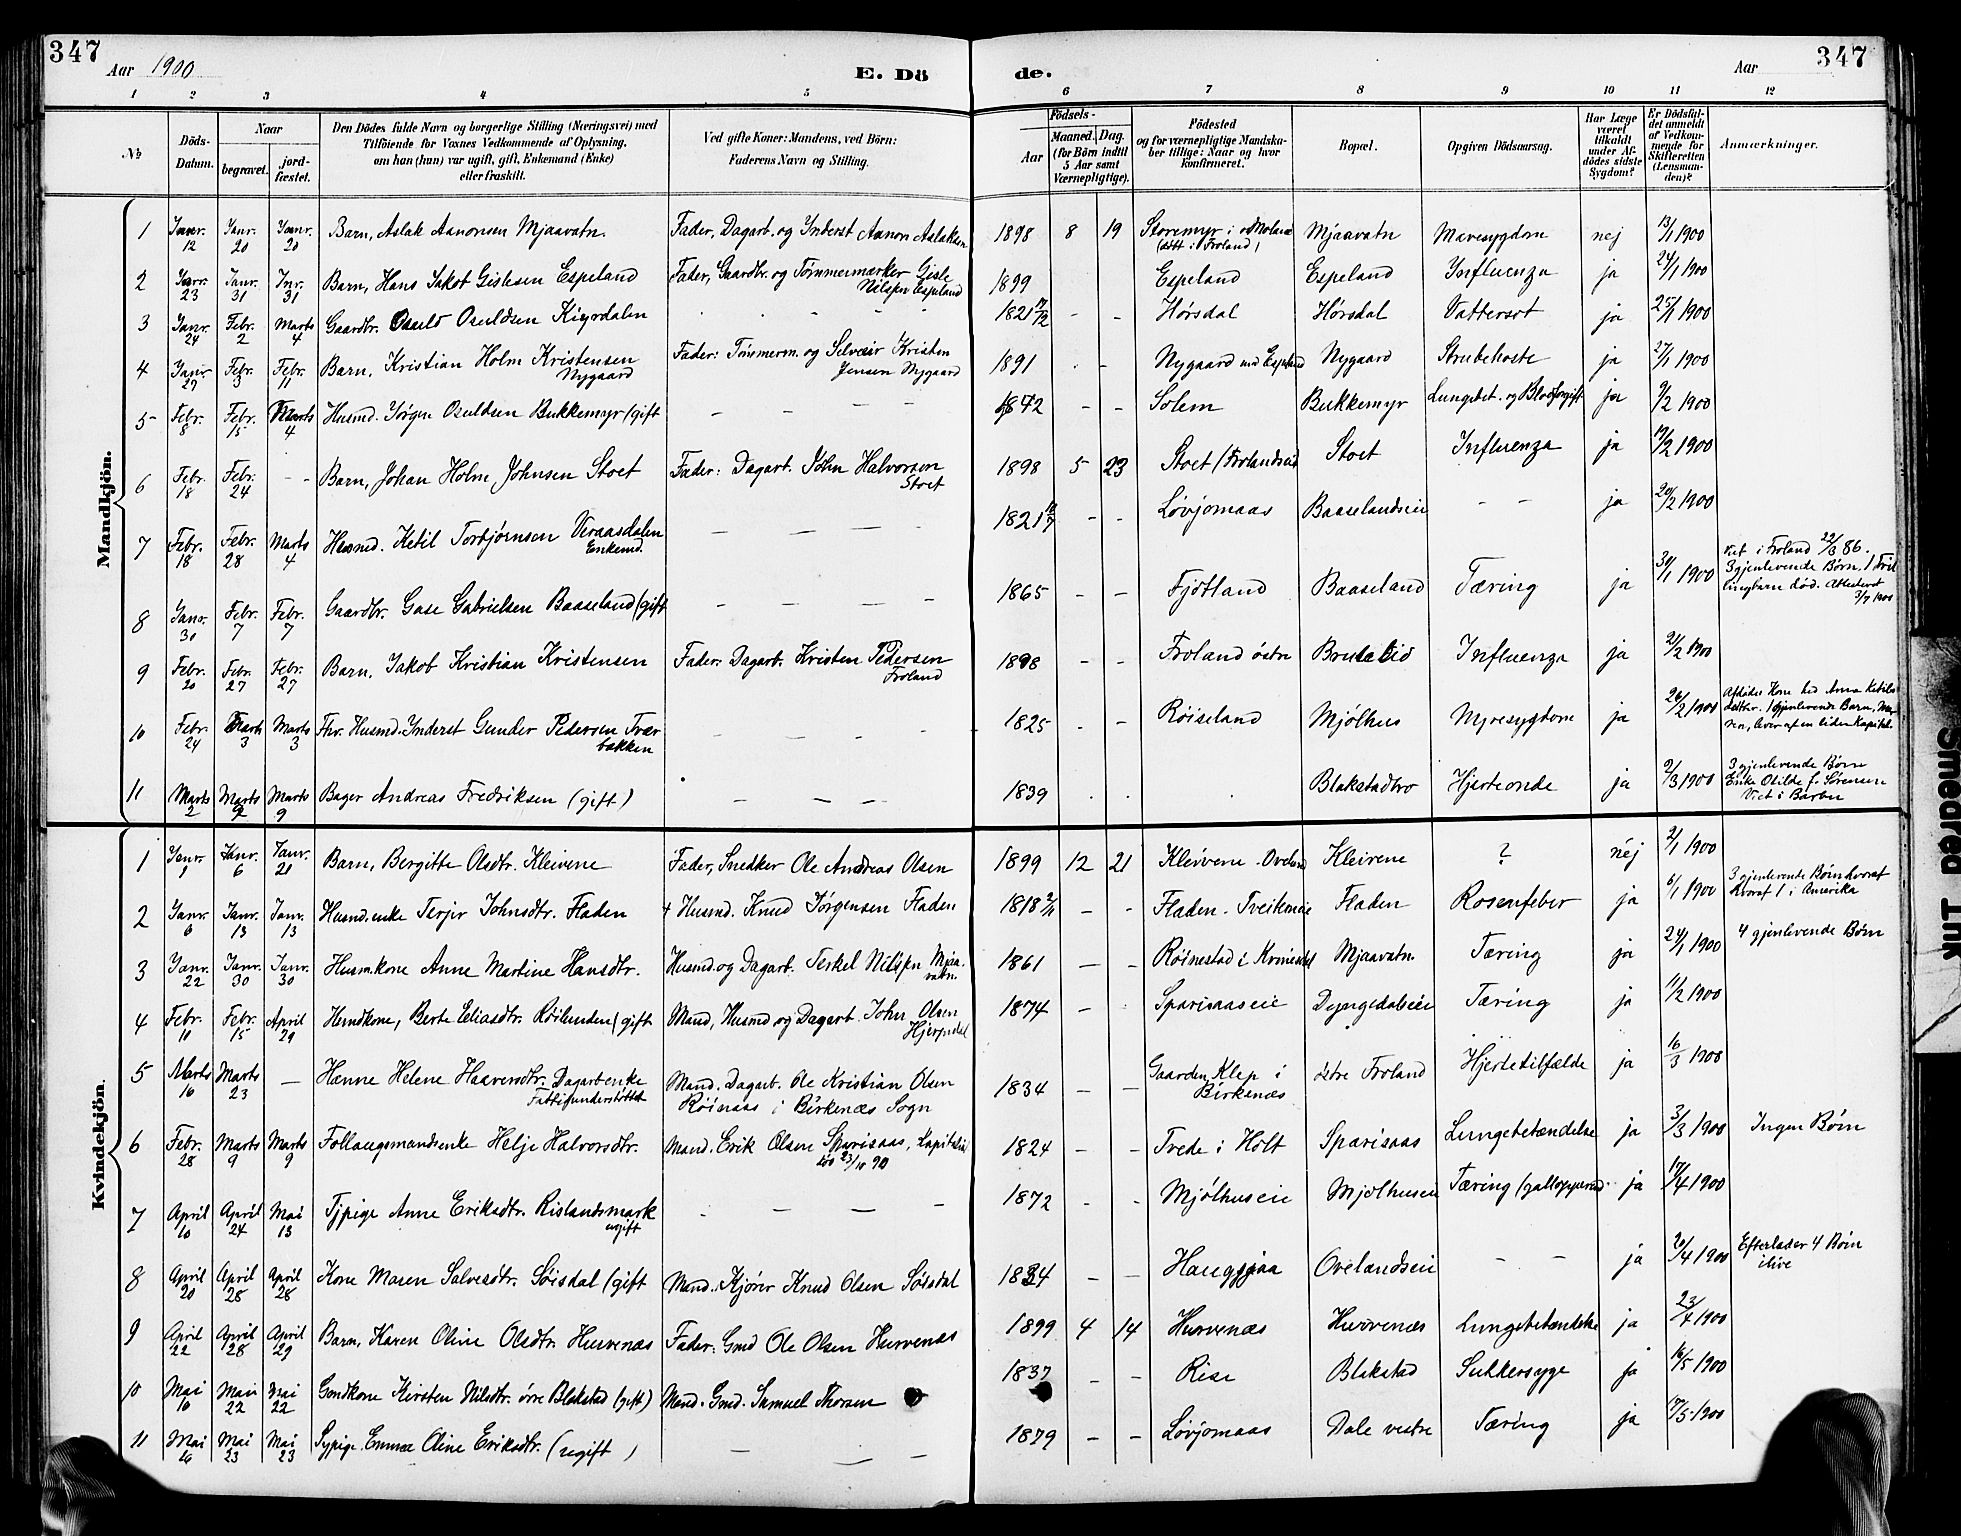 347
Aar 1900
E. Dö
de.
Aar
347
1 2 3 4 5 6 7 8 9 10 11 12
№
Döds-Datum.
Naar
begravet.
jord-fæstet.
Den Dödes fulde Navn og borgerlige Stilling (Næringsvei) med
Tilföiende for Voxnes Vedkommende af Oplysning,
om han (hun) var ugift, gift, Enkemand (Enke)
eller fraskilt.
Ved gifte Koner: Mandens, ved Börn:
Faderens Navn og Stilling.
Födsels-
Aar
Maaned. Dag.
(for Börn indtil
5 Aar samt
Værnepligtige).
Födested
og for værnepligtige Mandska-
ber tillige: Naar og hvor
konfirmeret.
Bopæl.
Opgiven Dödsaarsag.
Har Læge
været
tilkaldt
under Af-
dödes sidste
Sygdom?
Er Dödsfal-
det anmeldt
af Vedkom-
mende for
Skifteretten
(Lensman-
den)?
Anmærkninger.
Mandkjön.
1 Janr. 12 Janr. 20 Janr. 20 Barn, Aslak Aanonsen Mjaavatn. Fader, Dagarb. og Inderst Aanon Aslaksen 1898 8 19 Storemyr i (dtt i Froland) Mjaavatn Mavesygdom nej 13/1 1900
2 Janr. 23 Janr. 31 Jnr. 31 Barn, Hans Jakob Gislesen Espeland Fader, Gaardbr. og Tømmermærker Gisle Nilssen Espeland 1899 Espeland Espeland Influenza ja 24/1 1900
3 Janr. 24 Febr. 2 Marts 4 Gaardbr. Osuld Osuldsen 1821 Hørsdal Hørsdal Vattersot ja 25/1 1900
4 Janr 27 Febr. 3 Febr. 11 Barn, Kristian Holm Kristensen Nygaard Fader: Tømmerm. og Selveier Kristen Jensen Nygaard 1891 - Nygaard und Espeland Nygaard Strubehoste ja 27/1 1900
5 Febr. 8 Febr. 15 Marts 4 Husmd. Jørgen Osuldsen Bukkemyr (gift - - - - 1842 - - Solem Bukkemyr Lungebet. og Blodforgift ja 9/2 1900
6 Febr. 18 Febr. 24 - - Barn, Johan Holm Johnsen Stoet Fader: Dagarb. John Halvorsen Stoet 1898 5 23 Stoet (Frolandseie Stoet Influenza ja 19/2 1900
7 Febr. 18 Febr. 28 Marts 4 Husmd. Ketil Torbjørnsen Veraasdalen Enkemd. - - - - 1821 - - Løvjomaas Baaselandseie - - ja 20/2 1900
8 Janr. 30 Febr. 7 Febr. 7 Gaardbr. Gase Gabrielsen Baaseland (gift - - - - 1865 - - Fjotland Baaseland Tæring ja 31/1 1900 i Froland 22/3 86.
3 gjenlevende Børn, 1
død. Attesteret
3/7 1900
9 Febr. 20 Febr. 27 Febr. 27 Barn, Jakob Kristian Kristensen Fader: Dagarb. Kristen Pedersen Froland 1898 - - Froland østre Brutelid Influenza ja 21/2 1900
10 Febr. 24 Marts 3 Marts 3 Fhv. Husmd. Inderst Gunder Pedersen Tvær bakken - - - - 1825 - - Røiseland Mjølhus ja 26/2 1900 Afdødes Kone hed Anna Ketils
datter. 1 gjenlevende Barn,
lever af en liden Kapital.
11 Marts 2 Marts 9 Marts 9 Bager Andreas Fredriksen (gift) - - - 1839 Blakstadbro Hjerteonde ja 9/3 1900 3 gjenlevende Børn
Enke Otilde f. Sørensen
Viet i Barbu
Kvindekjön.
1 Janr. 1 Janr. 6 Janr. 21 Barn, Bergitte Olsdtr. Kleivene Fader, Snedker Ole Andreas Olsen 1899 12 21 Kleivene - Oveland Kleivene ? nei 2/1 1900
2 Janr. 6 Janr. 13 Janr. 13 Husmd.enke Terjer Johnsdtr. Fladen + Husmd. Knud Jørgensen Fladen 1818 - - Fladen - Fladen Rosenfeber ja 6/1 1900 3 gjenlevende Børn hvoraf
1 i Amerika
3 Janr. 22 Janr. 30 Janr. 30 Husm.kone Anne Martine Hansdtr. Husmd. og Dagarb. Terkel Nilssen Mjaa-vatn. 1861 - - Røinestad i Kvinesdal Mjaavatn Tæring ja 24/1 1900 4 gjenlevende Børn
4 Febr. 10 Febr. 15 April 29 Husmdkone, Berte Eliasdtr. Røilunden (gift Mand, Husmd og Dagarb. John Olsen 1874 - Sparsaaseie Dyngedalseie Tæring ja 11/2 1900
5 Marts 16 Marts 23 - Hanne Helene Haaversdtr. Dagarbenke Fattigunderstøttet Mand. Dagarb. Ole Kristian Olsen
Røinaas i Birkenæs Sogn 1834 - - Gaarden Klep i Birkenæs østre Froland Hjertetilfælde ja 16/3 1900
6 Febr. 28 Marts 9 Marts 9 Follaugsmandsenke Helje Halvorsdtr. Mand. Erik Olsen Sparsaas, Kapitalist død 23/10 90 1824 - - Tvede i Holt Sparsaas Lungebetændelse ja 3/3 1900 Ingen Børn
7 April 10 April 24 Mai 13 Tjpige Anne Eriksdtr. Rislandsmark ugift - - - - 1872 - - Mjølhuseie Mjølhuseie Tæring (galopperend. ja 17/4 1900
8 April 20 April 28 April 28 Kone Maren Salvesdtr. Søisdal (gift Mand. Kjører Knud Olsen Søisdal 1834 - - Haugsjaa Ovelandseie - - ja 21/4 1900 Efterlader 4 Børn
ilive
9 April 22 April 28 April 29 Barn, Karen Oline Olsdtr. Hurvenæs Fader: Gmd Ole Olsen Hurvenæs 1899 4 14 Hurvenæs Hurvenæs Lungebetændelse ja 23/4 1900
10 Mai 10 Mai 22 Mai 22 Gmdkone Kirsten Nilsdtr. øvre Blakstad (gift) Mand. Gmd. Samuel Thorsen 1837 - - Rise Blakstad Sukkersyge ja 16/5 1900
11 Mai 16 Mai 23 Mai 23 Sypige. Emma Oline Eriksdtr. (ugift) - - - 1879 - - Løvjomaas Dale vestre Tæring ja 17/5 1900
Smeared Ink